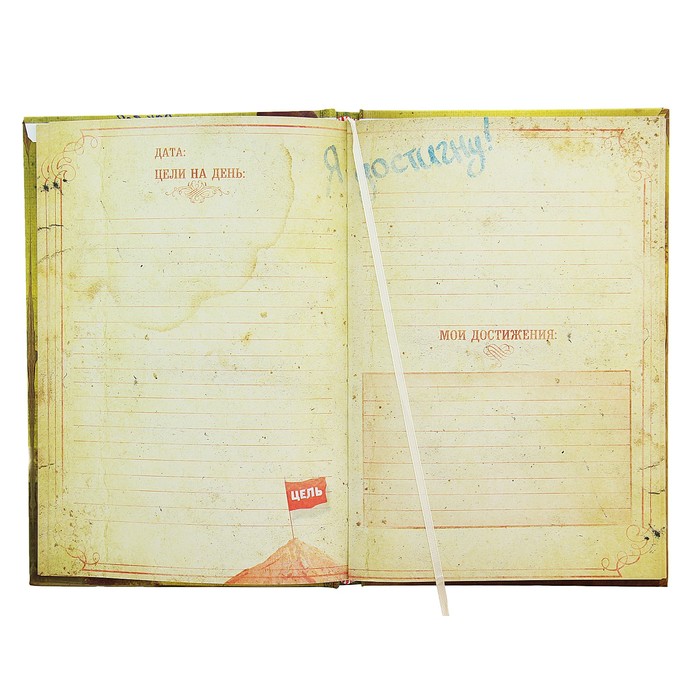 ДАТА:
ЦЕЛИ НА ДЕНЬ:
ЦЕЛЬ
Я достигну!
МОИ ДОСТИЖЕНИЯ: